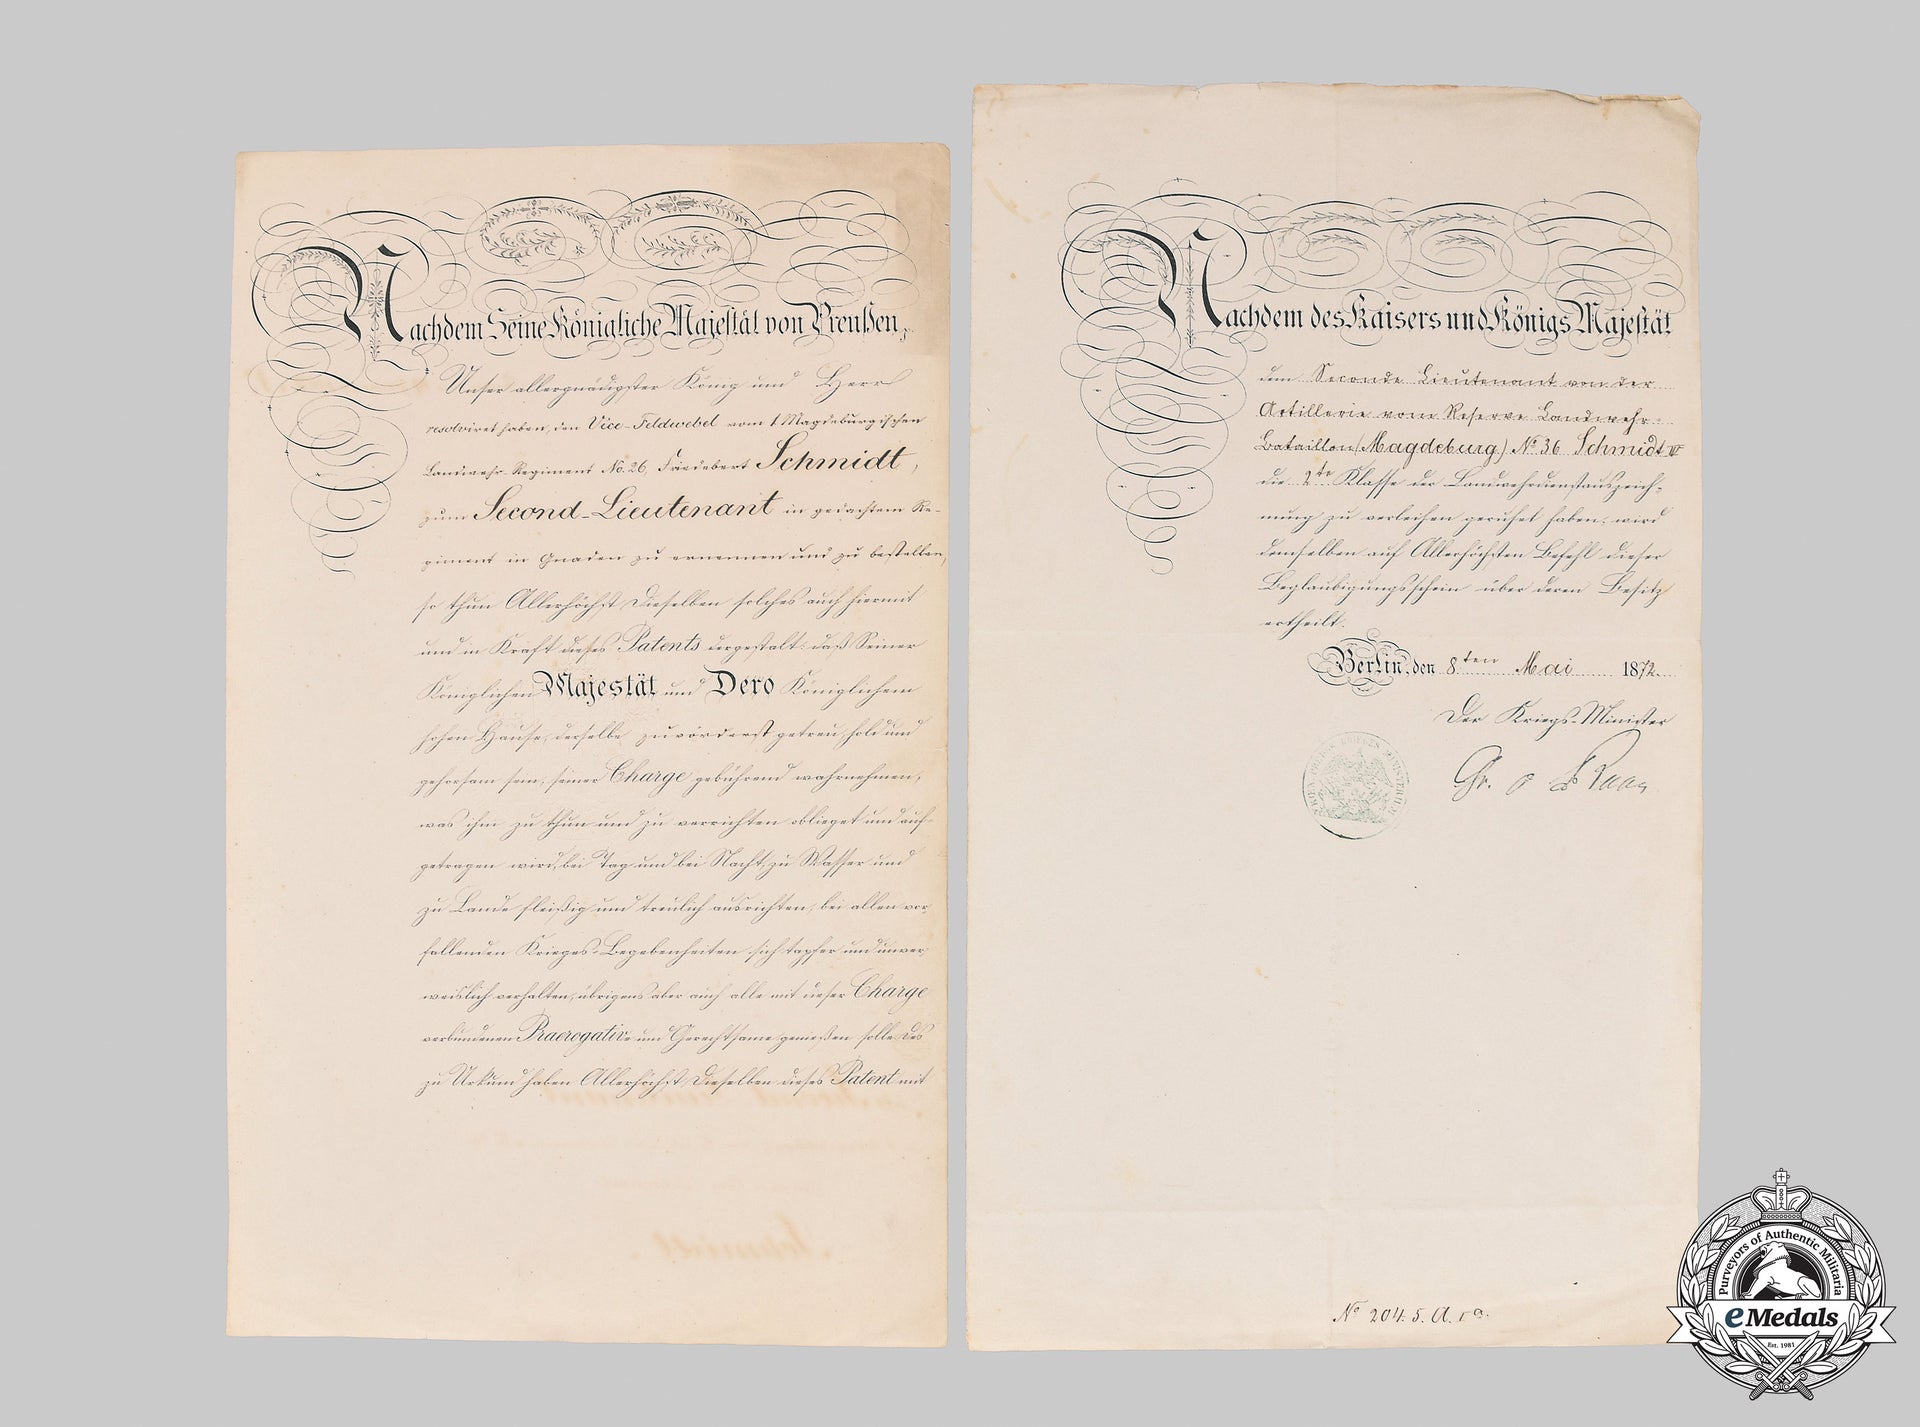 Nachdem Seine Königliche Majestät von Preußen,
Unser allergnädigster König und Herr
resolviret haben, den Vice-Feldwebel vom 1 Magdeburgischen
Landwehr-Regiment No. 26, Friedebert Schmidt,
zum Second-Lieutenant in gedachtem Re-
giment in Gnaden zu ernennen und zu bestellen,
so thun Allerhöchst Dieselben solches auch hiermit
und in Kraft dieses Patents dergestalt: daß Seiner
Königlichen Majestät und Dero Königlichem
hohen Hause, derselbe zuvörderst getreu, hold und
gehorsam sein, seiner Charge gebührend wahrnehmen,
was ihm zu thun und zu verrichten oblieget und auf-
getragen wird, bei Tag und bei Nacht, zu Wasser und
zu Lande fleißig und treulich ausrichten, bei allen vor-
fallenden Krieges-Begebenheiten sich tapfer und unver-
weislich verhalten, übrigens aber auch alle mit dieser Charge
verbundenen Praerogative und Gerechtsame genießen solle. Des
zu Urkund haben Allerhöchst Dieselben dieses Patent mit
Nachdem des Kaisers und Königs Majestät
dem Seconde Lieutenant von der
Artillerie vom Reserve Landwehr-
Bataillon (Magdeburg) No 36 Schmidt IV
die 2te Klasse der Landwehrdienstauszeich-
nung zu verleihen geruhet haben, wird
demselben auf Allerhöchsten Befehl dieser
Beglaubigungsschein über deren Besitz
ertheilt.
Berlin, den 8ten Mai 1872.
Der Kriegs-Minister
Gr. v Roon
No 204. 5. A. 1a.
Purveyors of Authentic Militaria
eMedals
Est. 1981